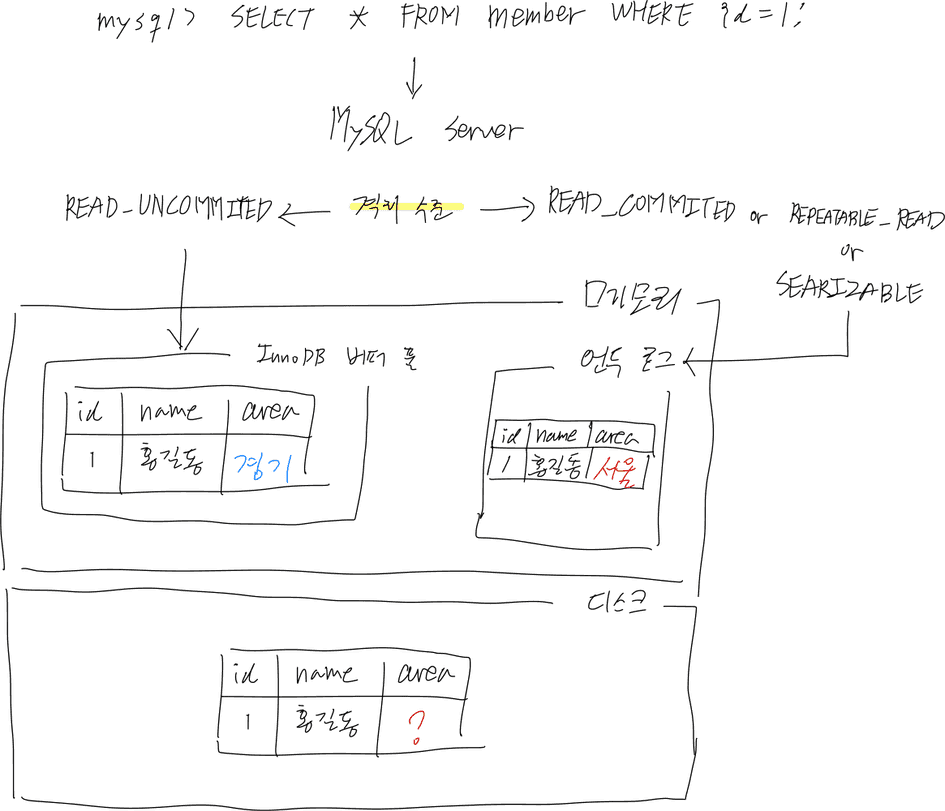 mysql> SELECT * FROM member WHERE id=1;
MySQL Server
READ_UNCOMMITED 격리 수준 READ_COMMITED or REPEATABLE_READ
or
SEARIZABLE
메모리
InnoDB 버퍼 풀
언두 로그
id name area
1 홍길동 경기
id name area
1 홍길동 서울
디스크
id name area
1 홍길동 ?